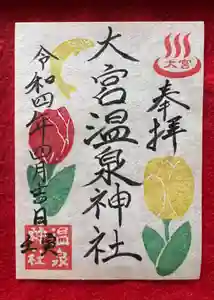 大宮
奉拝
大宮温泉神社
令和四年四月吉日
温泉
神社